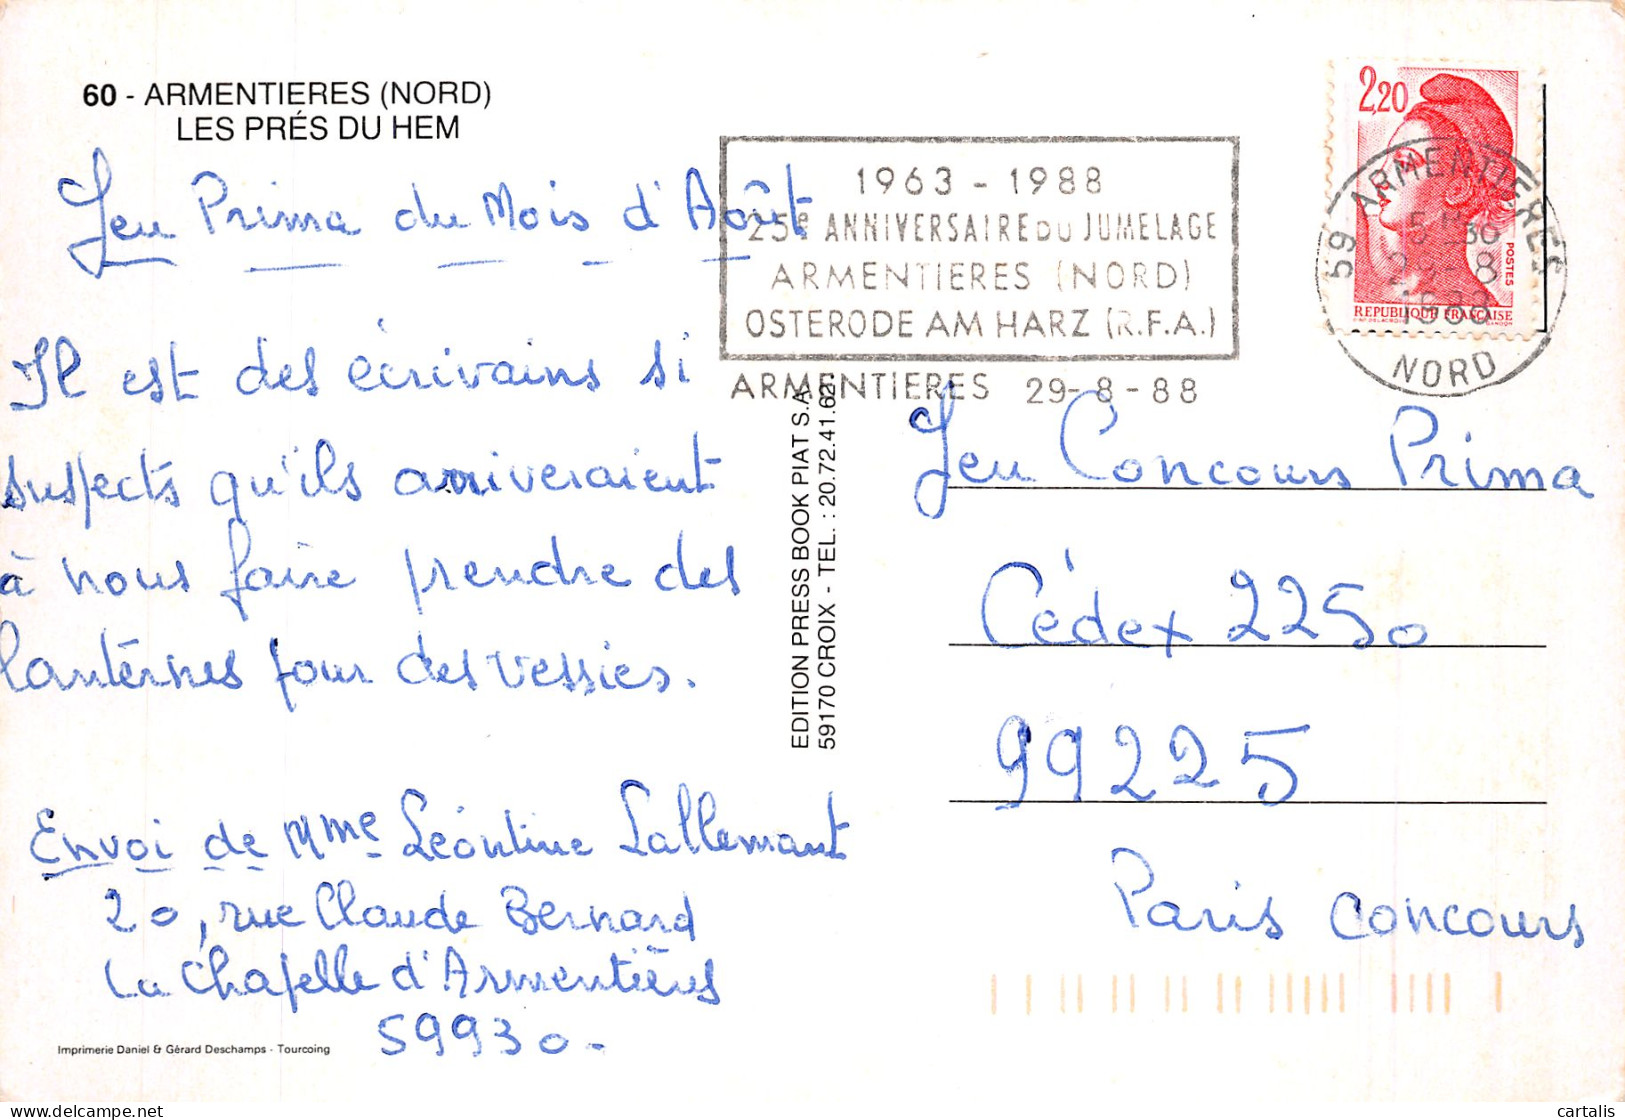 60 - ARMENTIERES (NORD)
LES PRÉS DU HEM
Jeu Prima du Mois d'Août
Il est des écrivains si
suspects qu'ils arriveraient
à nous faire prendre des
lanternes pour des vessies.
Envoi de Mme Léontine Lallemant
20, rue Claude Bernard
La Chapelle d'Armentières
59930.
Imprimerie Daniel & Gérard Deschamps - Tourcoing
EDITION PRESS BOOK PIAT S.A.
59170 CROIX - TEL. : 20.72.41.62
1963 - 1988
25e ANNIVERSAIRE DU JUMELAGE
ARMENTIERES (NORD)
OSTERODE AM HARZ (R.F.A.)
ARMENTIERES 29-8-88
2,20
POSTES
REPUBLIQUE FRANÇAISE
59 ARMENTIERES
29-8
1988
NORD
Jeu Concours Prima
Cédex 2250
99225
Paris Concours
cartalis